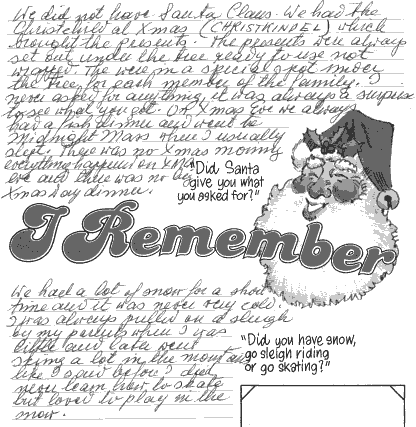 We did not have Santa Claus. We had the
Christchild at Xmas (CHRISTKINDEL) which
brought the presents. The presents were always
set out under the tree ready to use not
wrapped. The were in a special spot under
the tree for each member of the family. I
never asked for anything, it was always a surprise
to see what you got. On Xmas eve we always
had a fish dinner and went to
Midnight Mass when I usually
slept. There was no Xmas morning
everything happened on Xmas
eve and there was no big
Xmas day dinner.
"Did Santa
give you what
you asked for?"
I Remember
We had a lot of snow for a short
time and it was never very cold.
I was always pulled on a sleigh
by my parents when I was
little and later went
skiing a lot in the mountains
like I said before I did
never learn how to skate
but loved to play in the
snow.
"Did you have snow,
go sleigh riding
or go skating?"